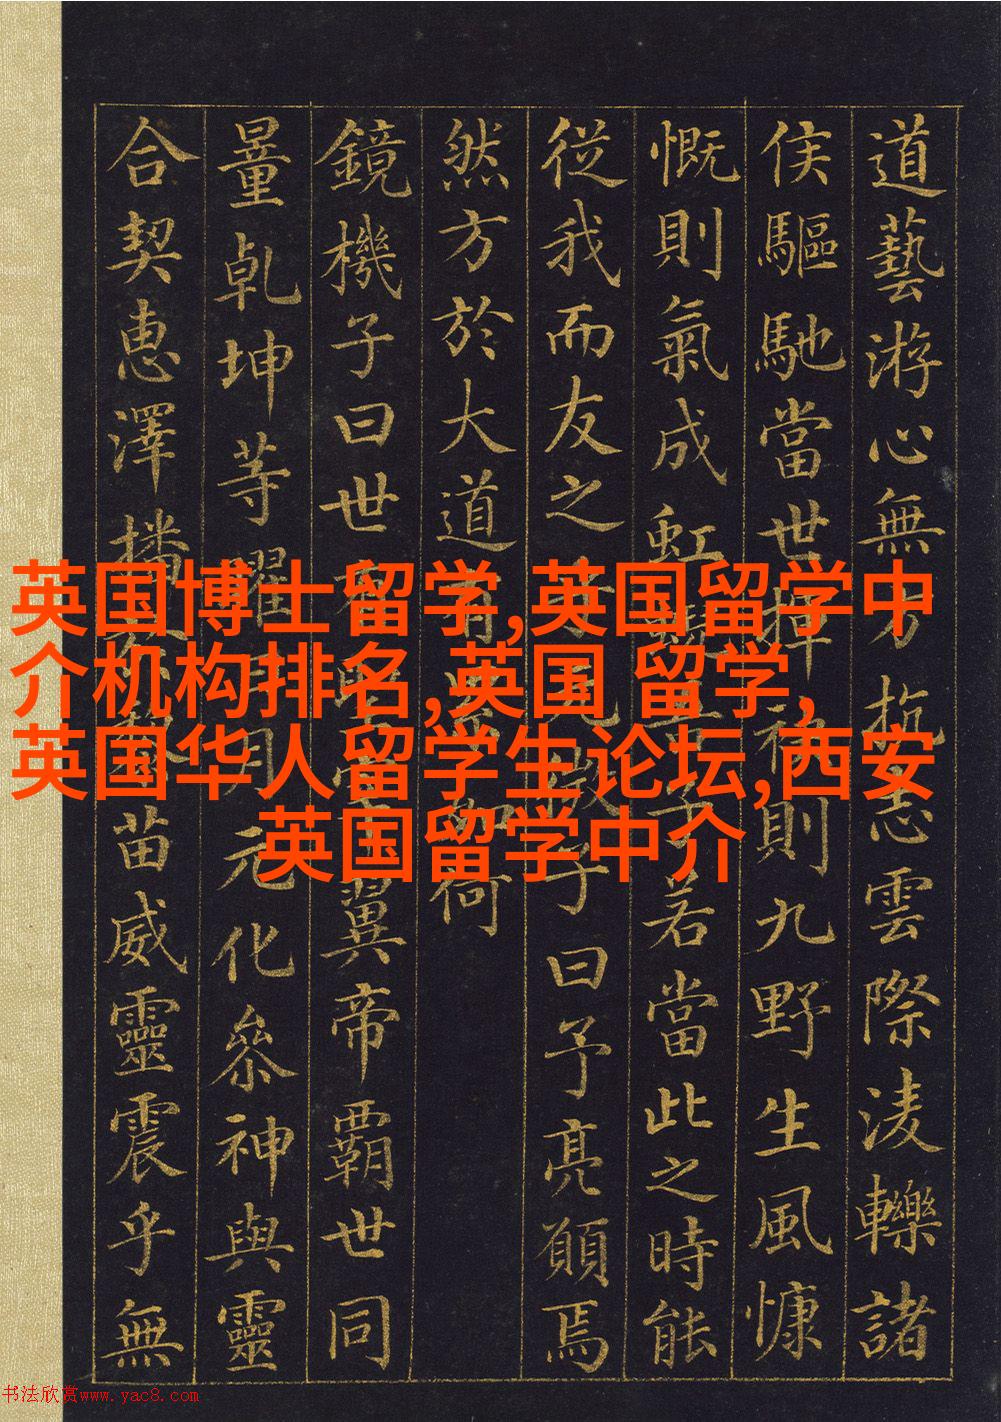 道藝游心無方抗志雲際淩轢諸
侯驅馳當世揮袂則九野生風慷
慨則氣成虹蜺吾子若當此之時能
從我而友之乎子曰予亮願焉
然方於大道有累如何
鏡機子曰世有聖宰翼帝霸世同
量乾坤等曜日月元化參神與靈
合契惠澤播於黎苗威靈震乎無
英国博士留学,英国留学中
介机构排名,英国 留学,
英国华人留学生论坛,西安
英国留学中介
书法欣赏www.yac8.com